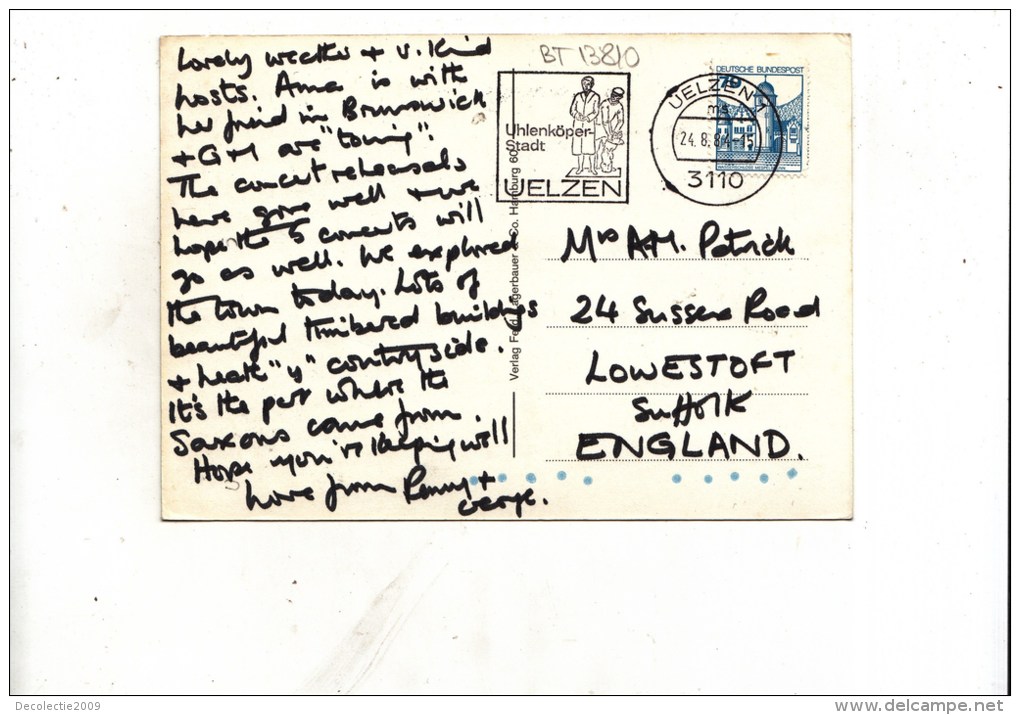 Lovely weather + v. kind
hosts. Anna is with
her friend in Brunswick
+ G+M are "touring".
The concert rehearsals
have gone well + we
hope the 5 concerts will
go as well. We explored
the town today. Lots of
beautiful timbered buildings
+ heath"y" countryside.
It's the part where the
Saxons came from.
Hope you're keeping well
Love from Penny +
George.
BT 1381/0
Uhlenköper-
Stadt
UELZEN
DEUTSCHE BUNDESPOST
70
UELZEN 1
ms
24.8.84-15
3110
Verlag Ferd. Lagerbauer & Co. Hamburg 60
Mrs A.M. Patrick
24 Sussex Road
LOWESTOFT
Suffolk
ENGLAND.
Decolectie2009
delcampe.net